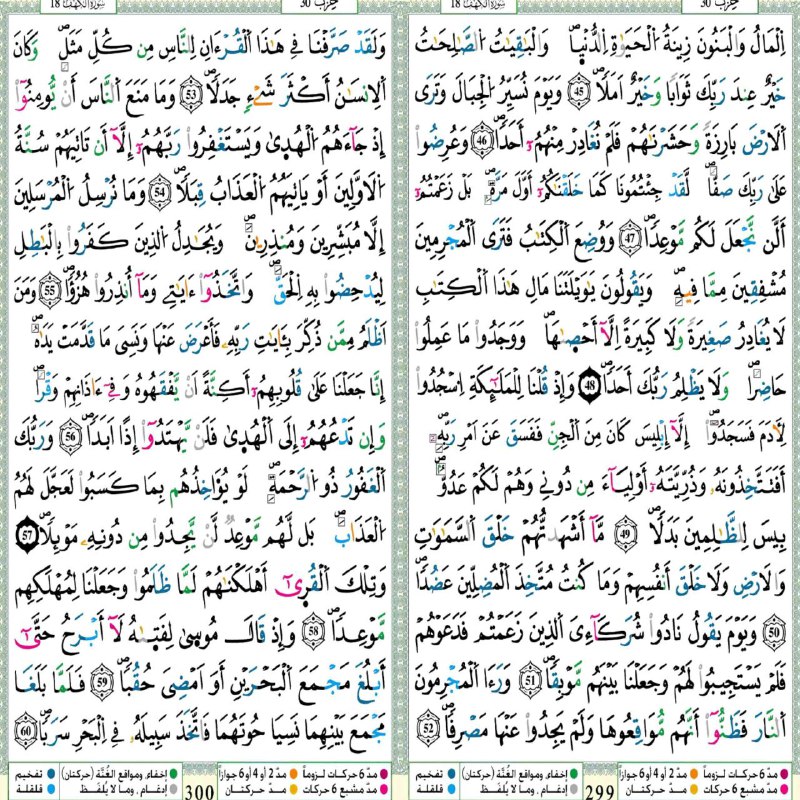 حزب 30
18 سورة الكهف
اِ۬لْمَالُ وَالْبَنُونَ زِينَةُ اُ۬لْحَيَوٰةِ اِ۬لدُّنْي۪اۖ وَالْبَٰقِيَٰتُ اُ۬لصَّٰلِحَٰتُ
خَيْرٌ عِندَ رَبِّكَ ثَوَاباٗ وَخَيْرٌ اَمَلاٗۖ 45 وَيَوْمَ نُسَيِّرُ اُ۬لْجِبَالَ وَتَرَى
اَ۬لَارْضَ بَارِزَةٗ وَحَشَرْنَٰهُمْ فَلَمْ نُغَادِرْ مِنْهُمُۥٓ أَحَداٗۖ 46 وَعُرِضُواْ
عَلَىٰ رَبِّكَ صَفّاٗۖ لَّقَدْ جِئْتُمُونَا كَمَا خَلَقْنَٰكُمُۥٓ أَوَّلَ مَرَّةِۢۖ بَلْ زَعَمْتُمُۥٓ
أَلَّن نَّجْعَلَ لَكُم مَّوْعِداٗۖ 47 وَوُضِعَ اَ۬لْكِتَٰبُ فَتَرَى اَ۬لْمُجْرِمِينَ
مُشْفِقِينَ مِمَّا فِيهِۖ وَيَقُولُونَ يَٰوَيْلَتَنَا مَالِ هَٰذَا اَ۬لْكِتَٰبِ
لَا يُغَادِرُ صَغِيرَةٗ وَلَا كَبِيرَةً اِلَّآ أَحْص۪يٰهَاۖ وَوَجَدُواْ مَا عَمِلُواْ
حَاضِراٗۖ وَلَا يَظْلِمُ رَبُّكَ أَحَداٗۖ 48 وَإِذْ قُلْنَا لِلْمَلَٰٓئِكَةِ اِ۟سْجُدُواْ
لِأٓدَمَ فَسَجَدُوٓاْۖ إِلَّآ إِبْلِيسَ كَانَ مِنَ اَ۬لْجِنِّ فَفَسَقَ عَنَ اَمْرِ رَبِّهِۦٓۖ
أَفَتَتَّخِذُونَهُۥ وَذُرِّيَّتَهُۥٓ أَوْلِيَآءَ مِن دُونِي وَهُمْ لَكُمْ عَدُوُّۢۖ
بِيسَ لِلظَّٰلِمِينَ بَدَلاٗۖ 49 مَّآ أَشْهَدتُّهُمْ خَلْقَ اَ۬لسَّمَٰوَٰتِ
وَالَارْضِ وَلَا خَلْقَ أَنفُسِهِمْ وَمَا كُنتُ مُتَّخِذَ اَ۬لْمُضِلِّينَ عَضُداٗۖ
50 وَيَوْمَ يَقُولُ نَادُواْ شُرَكَآءِيَ اَ۬لذِينَ زَعَمْتُمْ فَدَعَوْهُمْ
فَلَمْ يَسْتَجِيبُواْ لَهُمْ وَجَعَلْنَا بَيْنَهُم مَّوْبِقاٗۖ 51 وَرَءَا اَ۬لْمُجْرِمُونَ
اَ۬لنَّارَ فَظَنُّوٓاْ أَنَّهُم مُّوَاقِعُوهَا وَلَمْ يَجِدُواْ عَنْهَا مَصْرِفاٗۖ 52
مدّ 6 حركات لزوماً مدّ 2 أو 4 أو 6 جوازاً إخفاء، ومواقع الغُنَّة (حركتان) تفخيم
مدّ مشبع 6 حركات مدّ حركتان إدغام، وما لا يُلفَظ قلقلة
299
حزب 30
18 سورة الكهف
وَلَقَدْ صَرَّفْنَا فِي هَٰذَا اَ۬لْقُرْءَانِ لِلنَّاسِ مِن كُلِّ مَثَلٖۖ وَكَانَ
اَ۬لِانسَٰنُ أَكْثَرَ شَےْءٖ جَدَلاٗۖ 53 وَمَا مَنَعَ اَ۬لنَّاسَ أَنْ يُّومِنُوٓاْ
إِذْ جَآءَهُمُ اُ۬لْهُد۪يٰ وَيَسْتَغْفِرُواْ رَبَّهُمُۥٓ إِلَّآ أَن تَاتِيَهُمْ سُنَّةُ
اُ۬لَاوَّلِينَ أَوْ يَاتِيَهُمُ اُ۬لْعَذَابُ قِبَلاٗۖ 54 وَمَا نُرْسِلُ اُ۬لْمُرْسَلِينَ
إِلَّا مُبَشِّرِينَ وَمُنذِرِينَۖ وَيُجَٰدِلُ اُ۬لذِينَ كَفَرُواْ بِالْبَٰطِلِ
لِيُدْحِضُواْ بِهِ اِ۬لْحَقَّۖ وَاتَّخَذُوٓاْ ءَايَٰتِے وَمَآ أُنذِرُواْ هُزُؤاٗۖ 55 وَمَنَ
اَظْلَمُ مِمَّن ذُكِّرَ بِـَٔايَٰتِ رَبِّهِۦ فَأَعْرَضَ عَنْهَا وَنَسِيَ مَا قَدَّمَتْ يَدَٰهُۖ
إِنَّا جَعَلْنَا عَلَىٰ قُلُوبِهِمُۥٓ أَكِنَّةً اَنْ يَّفْقَهُوهُ وَفِےٓ ءَاذَانِهِمْ وَقْراٗۖ
وَإِن تَدْعُهُمُۥٓ إِلَى اَ۬لْهُد۪يٰ فَلَنْ يَّهْتَدُوٓاْ إِذاً اَبَداٗۖ 56 وَرَبُّكَ
اَ۬لْغَفُورُ ذُو اُ۬لرَّحْمَةِۖ لَوْ يُؤَاخِذُهُم بِمَا كَسَبُواْ لَعَجَّلَ لَهُمُ
اُ۬لْعَذَابَۖ بَل لَّهُم مَّوْعِدٞ لَّنْ يَّجِدُواْ مِن دُونِهِۦ مَوْئِلاٗۖ 57
وَتِلْكَ اَ۬لْقُر۪يٰٓ أَهْلَكْنَٰهُمْ لَمَّا ظَلَمُواْ وَجَعَلْنَا لِمُهْلَكِهِم
مَّوْعِداٗۖ 58 وَإِذْ قَالَ مُوس۪يٰ لِفَت۪يٰهُ لَآ أَبْرَحُ حَتَّىٰٓ
أَبْلُغَ مَجْمَعَ اَ۬لْبَحْرَيْنِ أَوَ اَمْضِيَ حُقُباٗۖ 59 فَلَمَّا بَلَغَا
مَجْمَعَ بَيْنِهِمَا نَسِيَا حُوتَهُمَا فَاتَّخَذَ سَبِيلَهُۥ فِي اِ۬لْبَحْرِ سَرَباٗۖ 60
مدّ 6 حركات لزوماً مدّ 2 أو 4 أو 6 جوازاً إخفاء، ومواقع الغُنَّة (حركتان) تفخيم
مدّ مشبع 6 حركات مدّ حركتان إدغام، وما لا يُلفَظ قلقلة
300